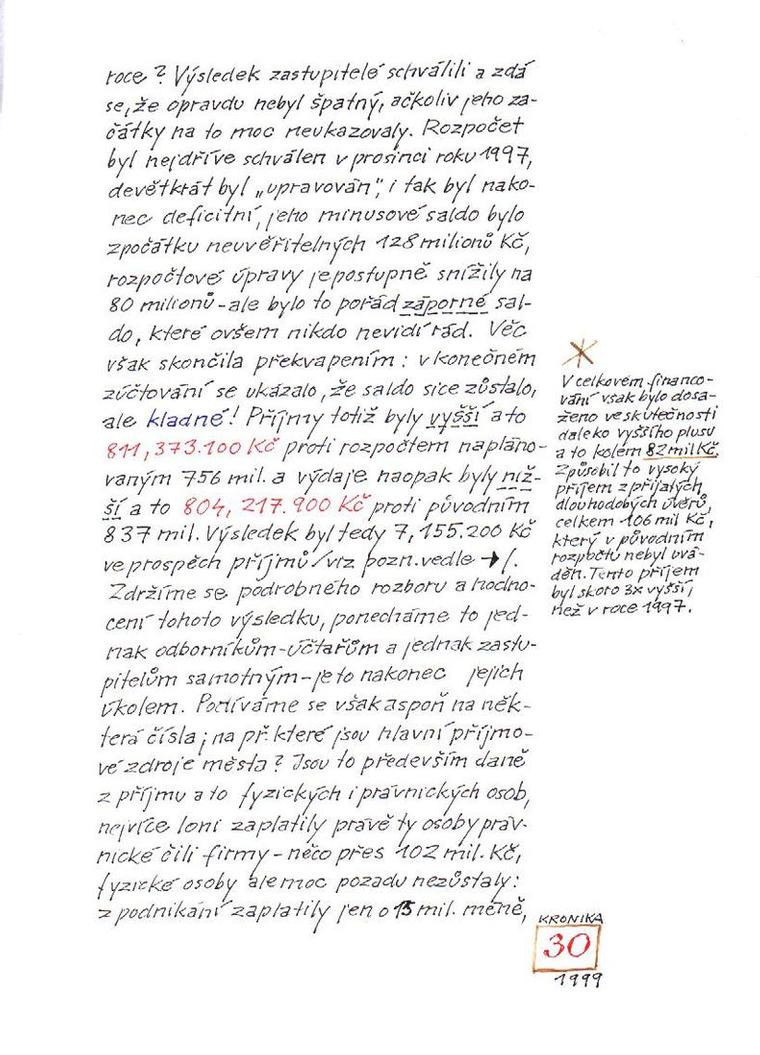 roce? Výsledek zastupitelé schválili a zdá
se, že opravdu nebyl špatný, ačkoliv jeho za-
čátky na to moc neukazovaly. Rozpočet
byl nejdříve schválen v prosinci roku 1997,
devětkrát byl „upravován", i tak byl nako-
nec deficitní, jeho minusové saldo bylo
zpočátku neuvěřitelných 128 milionů Kč,
rozpočtové úpravy je postupně snížily na
80 milionů - ale bylo to pořád záporné sal-
do, které ovšem nikdo nevidí rád. Věc
však skončila překvapením: v konečném
zúčtování se ukázalo, že saldo sice zůstalo,
ale kladné! Příjmy totiž byly vyšší a to
811,373.100 Kč proti rozpočtem napláno-
vaným 756 mil. a výdaje naopak byly niž-
ší a to 804,217.900 Kč proti původním
837 mil. Výsledek byl tedy 7,155.200 Kč
ve prospěch příjmů /viz pozn. vedle → /.
Zdržíme se podrobného rozboru a hodno-
cení tohoto výsledku, ponecháme to jed-
nak odborníkům-účtařům a jednak zastu-
pitelům samotným - je to nakonec jejich
úkolem. Podíváme se však aspoň na něk-
terá čísla; na př. které jsou hlavní příjmo-
vé zdroje města? Jsou to především daně
z příjmu a to fyzických i právnických osob,
nejvíce loni zaplatily právě ty osoby práv-
nické čili firmy - něco přes 102 mil. Kč,
fyzické osoby ale moc pozadu nezůstaly:
z podnikání zaplatily jen o 15 mil. méně,
V celkovém financo-
vání však bylo dosa-
ženo ve skutečnosti
daleko vyššího plusu
a to kolem 82 mil Kč.
Způsobil to vysoký
příjem z přijatých
dlouhodobých úvěrů,
celkem 106 mil Kč,
který v původním
rozpočtu nebyl uvá-
děn. Tento příjem
byl skoro 3x vyšší,
než v roce 1997.
KRONIKA
30
1999